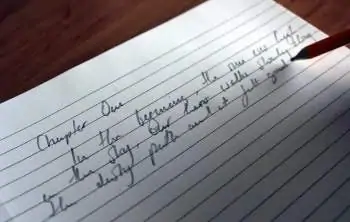 Chapter One
In the beginning, the sun was hot
in the sky, our hero walks slowly along
the dusty path and it felt good